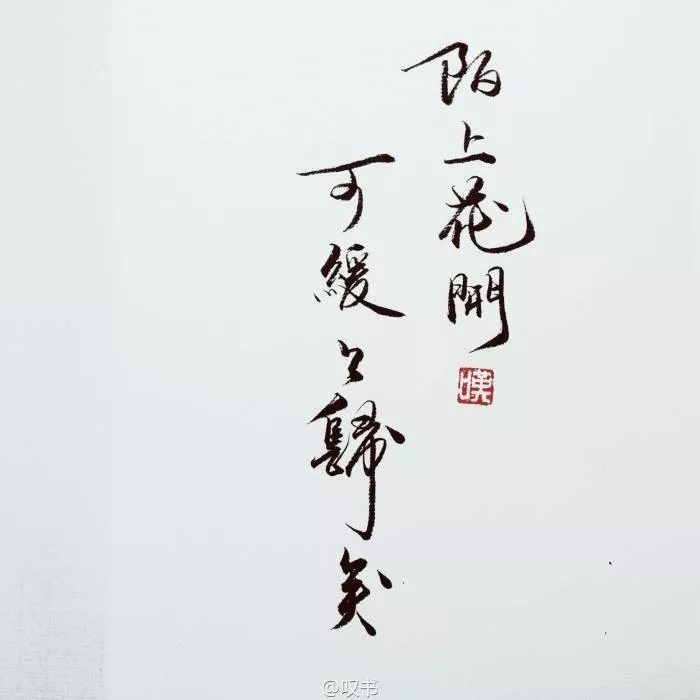 陌上花開
嘆
可緩〻歸矣
@叹书